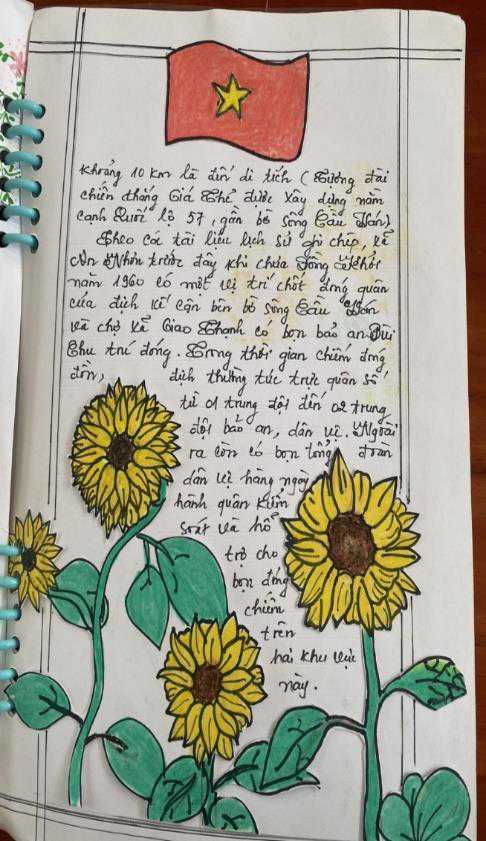 Khoảng 10 km là đến di tích (Tượng đài
chiến thắng Giá Thẻ được xây dựng nằm
cạnh Quốc lộ 57, gần bờ sông Cầu Ván)
Theo các tài liệu lịch sử ghi chép, xã
An Nhơn trước đây khi chưa Đồng Khởi
năm 1960 có một vị trí chốt đóng quân
của địch kế cận bên bờ sông Cầu Ván
và chợ xã Giao Thạnh có bọn bảo an Bùi
Chu trú đóng. Trong thời gian chiếm đóng
đồn, địch thường túc trực quân số
từ 01 trung đội đến 02 trung
đội bảo an, dân vệ. Ngoài
ra còn có bọn tổng đoàn
dân vệ hàng ngày
hành quân kiểm
soát và hỗ
trợ cho
bọn đóng
chiếm
trên
hai khu vực
này.